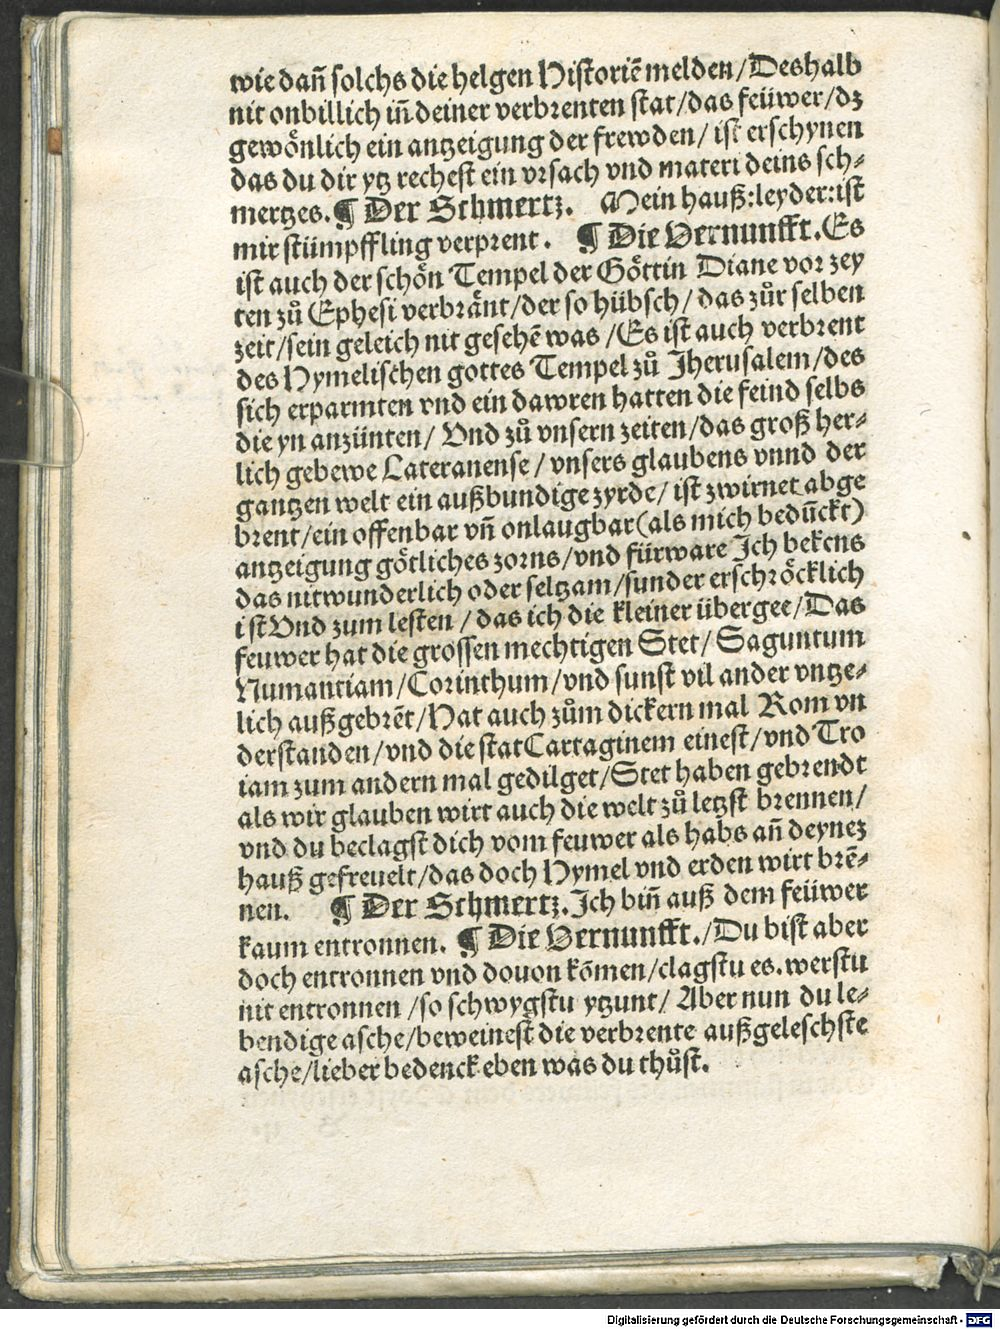 wie dañ solchs die helgen Historiē melden/Deshalb
nit onbillich iñ deiner verbrenten stat/das feüwer/dz
gewönlich ein antzeigung der frewden/ ist erschynen
das du dir ytz rechest ein vrsach vnd materi deins sch⸗
mertzes.¶ Der Schmertz. Mein hauß:leyder:ist
mir stümpffling verprent. ¶ Die Vernunfft.Es
ist auch der schoͤn Tempel der Goͤttin Diane vor zey
ten zů Ephesi verbraͤnt/der so hübsch/ das zůr selben
zeit/sein geleich nit gesehē was/Es ist auch verbrent
des Hymelischen gottes Tempel zů Jherusalem/des
sich erparmten vnd ein dawren hatten die feind selbs
die yn anzünten/ Vnd zů vnsern zeiten/das groß her⸗
lich gebewe Lateranense/vnsers glaubens vnnd der
gantzen welt ein außbundige zyrde/ ist zwirnet abge
brent/ein offenbar vñ onlaugbar(als mich bedūckt)
antzeigung goͤtliches zorns/vnd fürware Ich bekens
das nit wunderlich oder seltzam/sunder erschroͤcklich
ist Vnd zum lesten/das ich die kleiner übergee/Das
feuwer hat die grossen mechtigen Stet/ Saguntum
Numantiam/Corinthum/vnd sunst vil ander vntze⸗
lich außgebrēt/Hat auch zům dickern mal Rom vn
derstanden/vnd die stat Cartaginem einest/vnd Tro
iam zum andern mal gedilget/Stet haben gebrendt
als wir glauben wirt auch die welt zů letzst brennen/
vnd du beclagst dich vom feuwer als habs añ deynez
hauß gefreuelt/das doch Hymel vnd erden wirt brē⸗
nen. ¶ Der Schmertz.Ich biñ auß dem feüwer
kaum entronnen. ¶ Die Vernunfft./Du bist aber
doch entronnen vnd douon kōmen/clagstu es.werstu
nit entronnen/so schwygstu ytzunt/ Aber nun du le⸗
bendige asche/beweinest die verbrente außgeleschste
asche/lieber bedenck eben was du thůst.
Digitalisierung gefördert durch die Deutsche Forschungsgemeinschaft - DFG